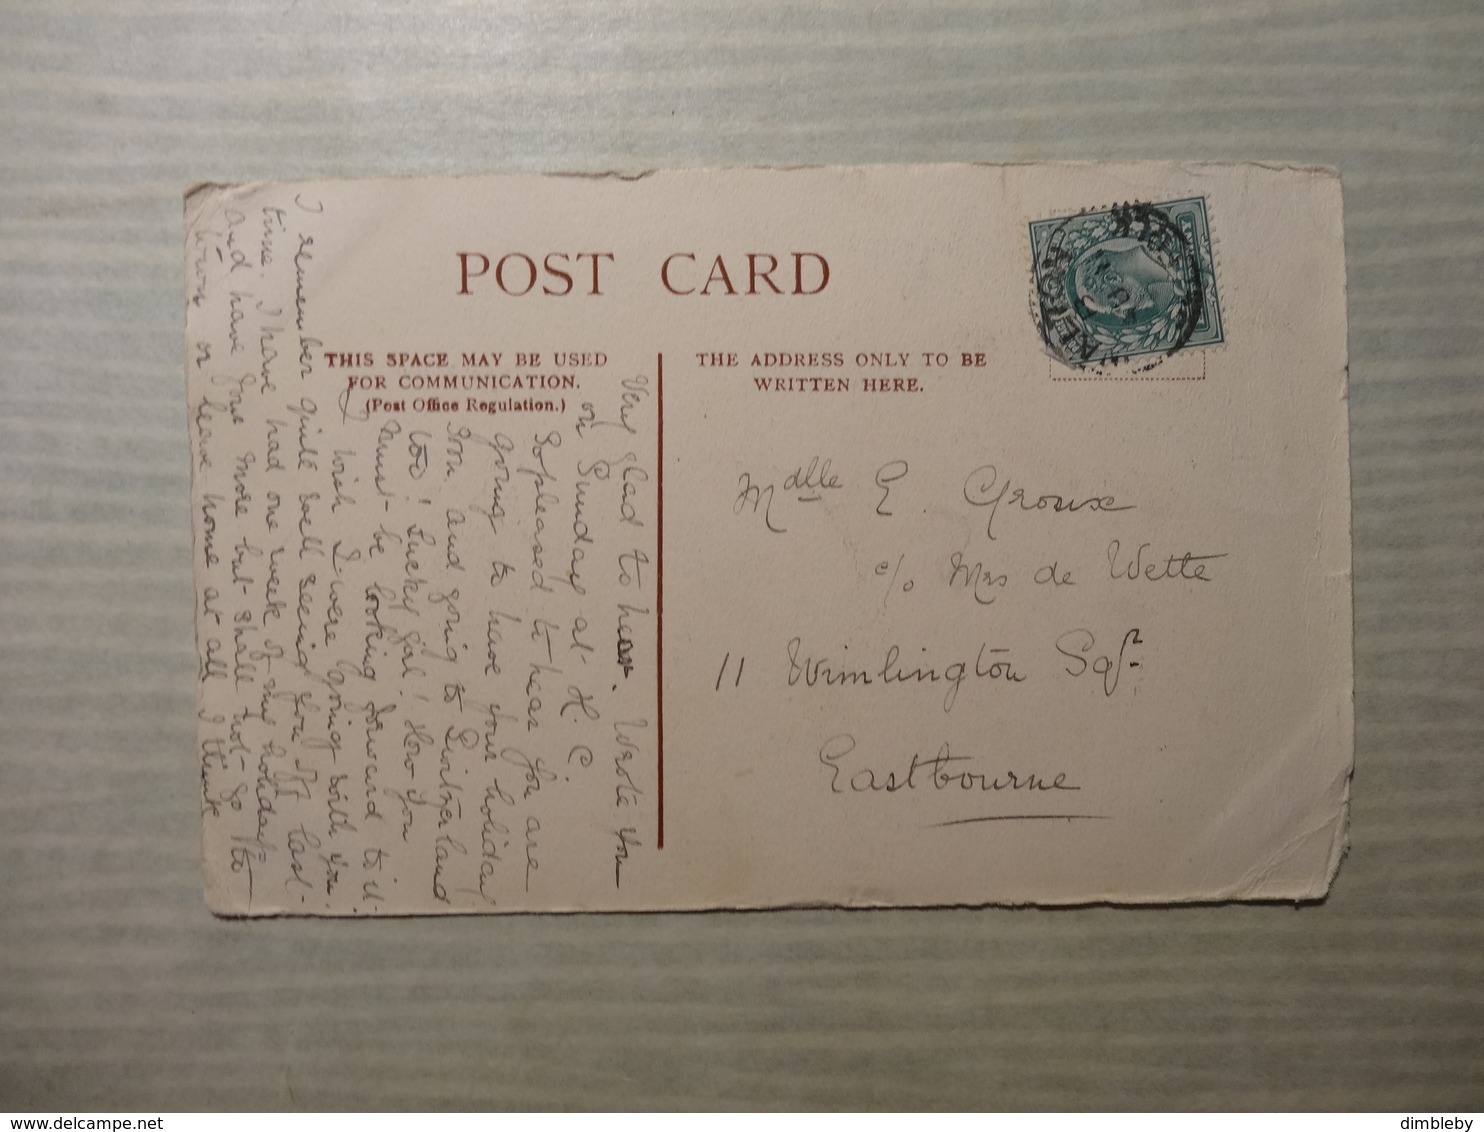 POST CARD
THIS SPACE MAY BE USED
FOR COMMUNICATION.
(Post Office Regulation.)
THE ADDRESS ONLY TO BE
WRITTEN HERE.
Very glad to hear. Wrote you
on Sunday at H. C.
So pleased to hear you are
going to have your holiday
soon and going to Switzerland
too! Lucky girl! How you
must be looking forward to it.
I wish I were going with you.
I remember quite well seeing you off last
time. I have had one week of my holidays
and have one more but shall not go to
or leave home at all I think
Mdlle E. Groux
c/o Mrs de Wette
11 Wimlington Sqr.
Eastbourne
dimbleby